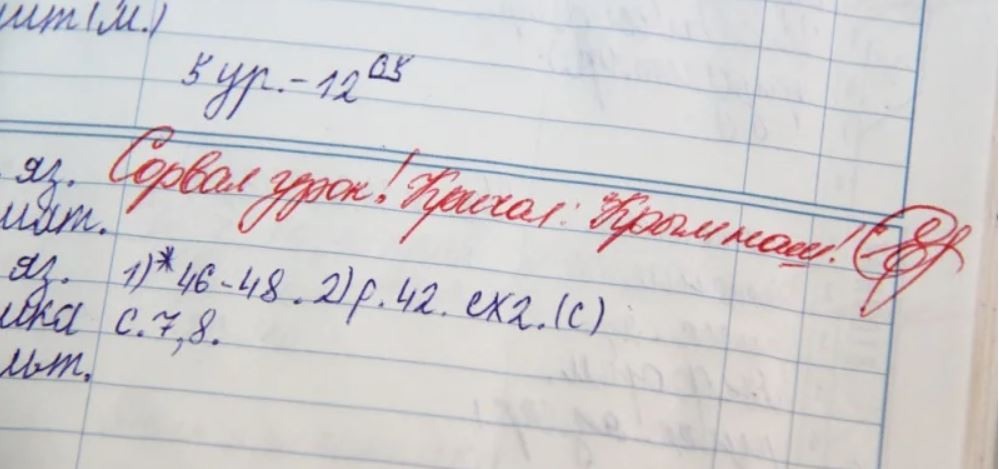 шт(м.)
5 ур. - 12 05
яз. Сорвал урок! Кричал: "Крым наш!"
мат.
яз. 1)*46-48. 2) р. 42. ex2. (с)
ика с. 7, 8.
льт.